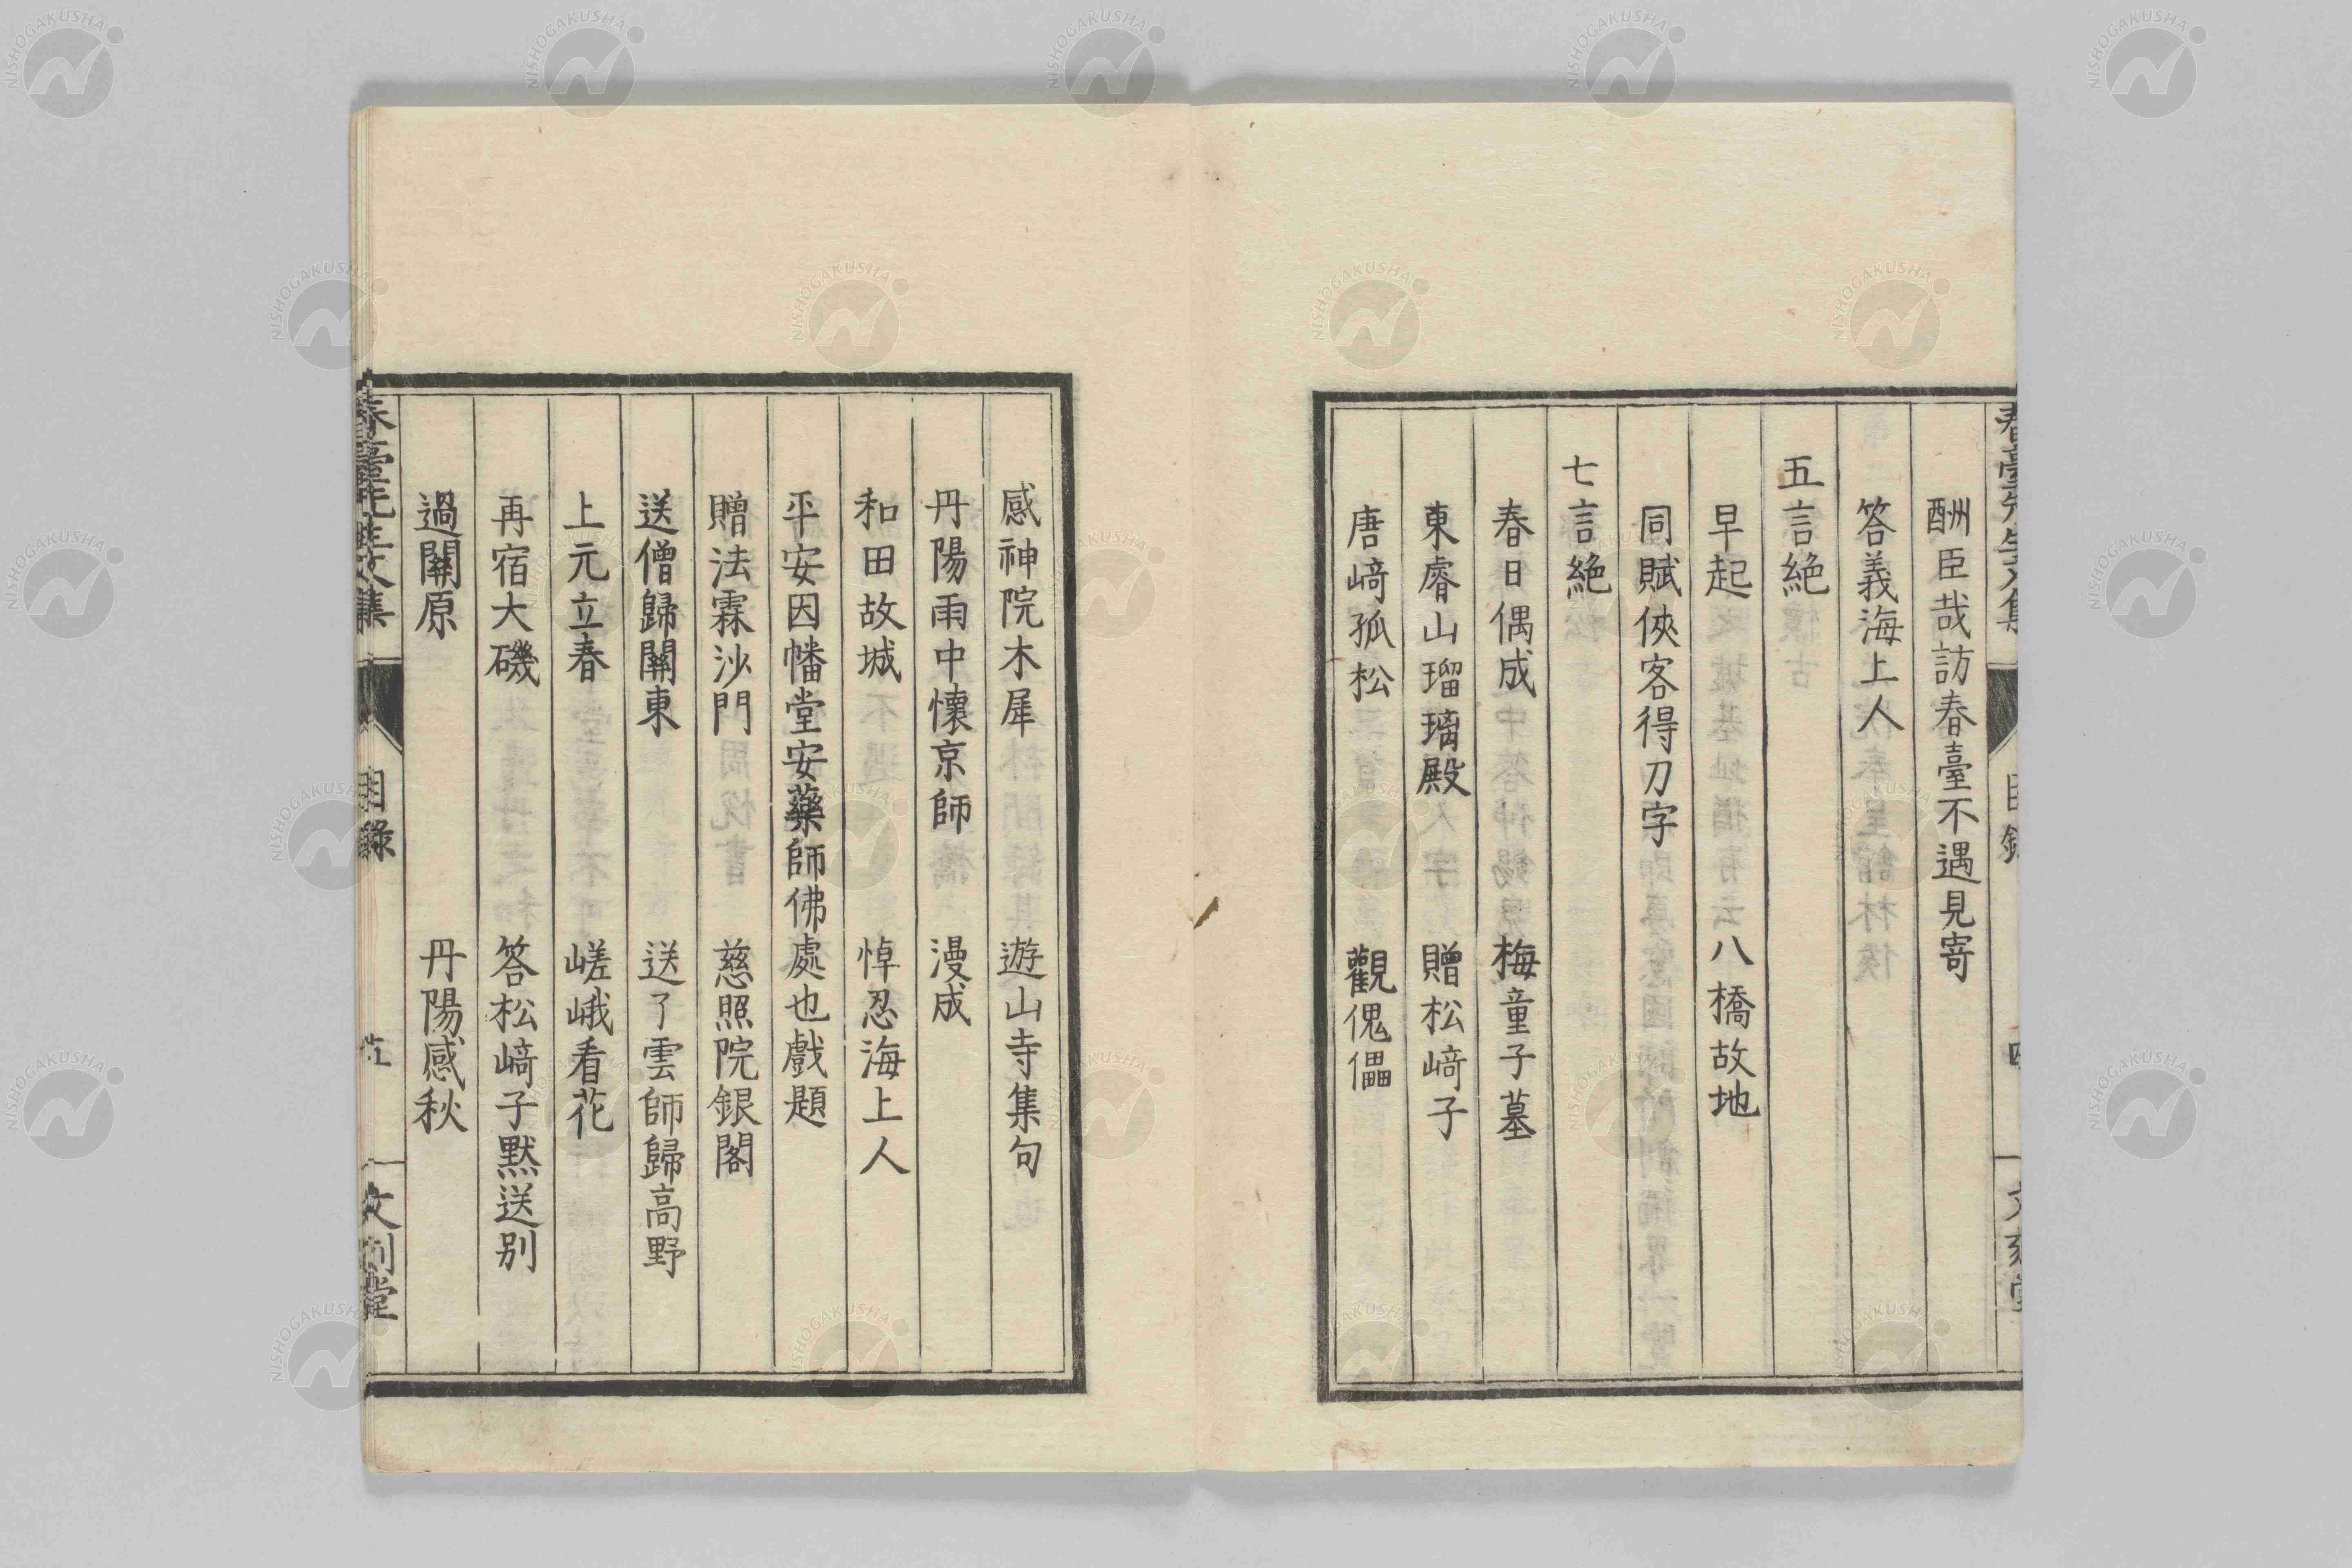 酬臣哉訪春臺不遇見寄
答義海上人
五言絶
早起 八橋故地
同賦俠客得刀字
七言絶
春日偶成 梅童子墓
東睿山瑠璃殿 贈松﨑子
唐﨑孤松 觀傀儡
感神院木犀 遊山寺集句
丹陽雨中懷京師 漫成
和田故城 悼忍海上人
平安因幡堂安藥師佛處也戲題
贈法霖沙門 慈照院銀閣
送僧歸關東 送了雲師歸高野
上元立春 嵯峨看花
再宿大磯 答松﨑子默送別
過關原 丹陽感秋
春臺先生文集 目録 五 文刻堂
NISHOGAKUSHA